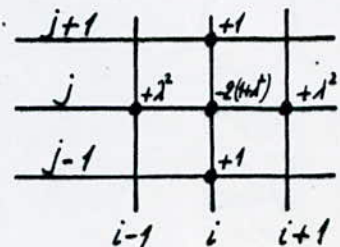 j+1 +1
j +λ² -2(1+λ²) +λ²
j-1 +1
i-1 i i+1